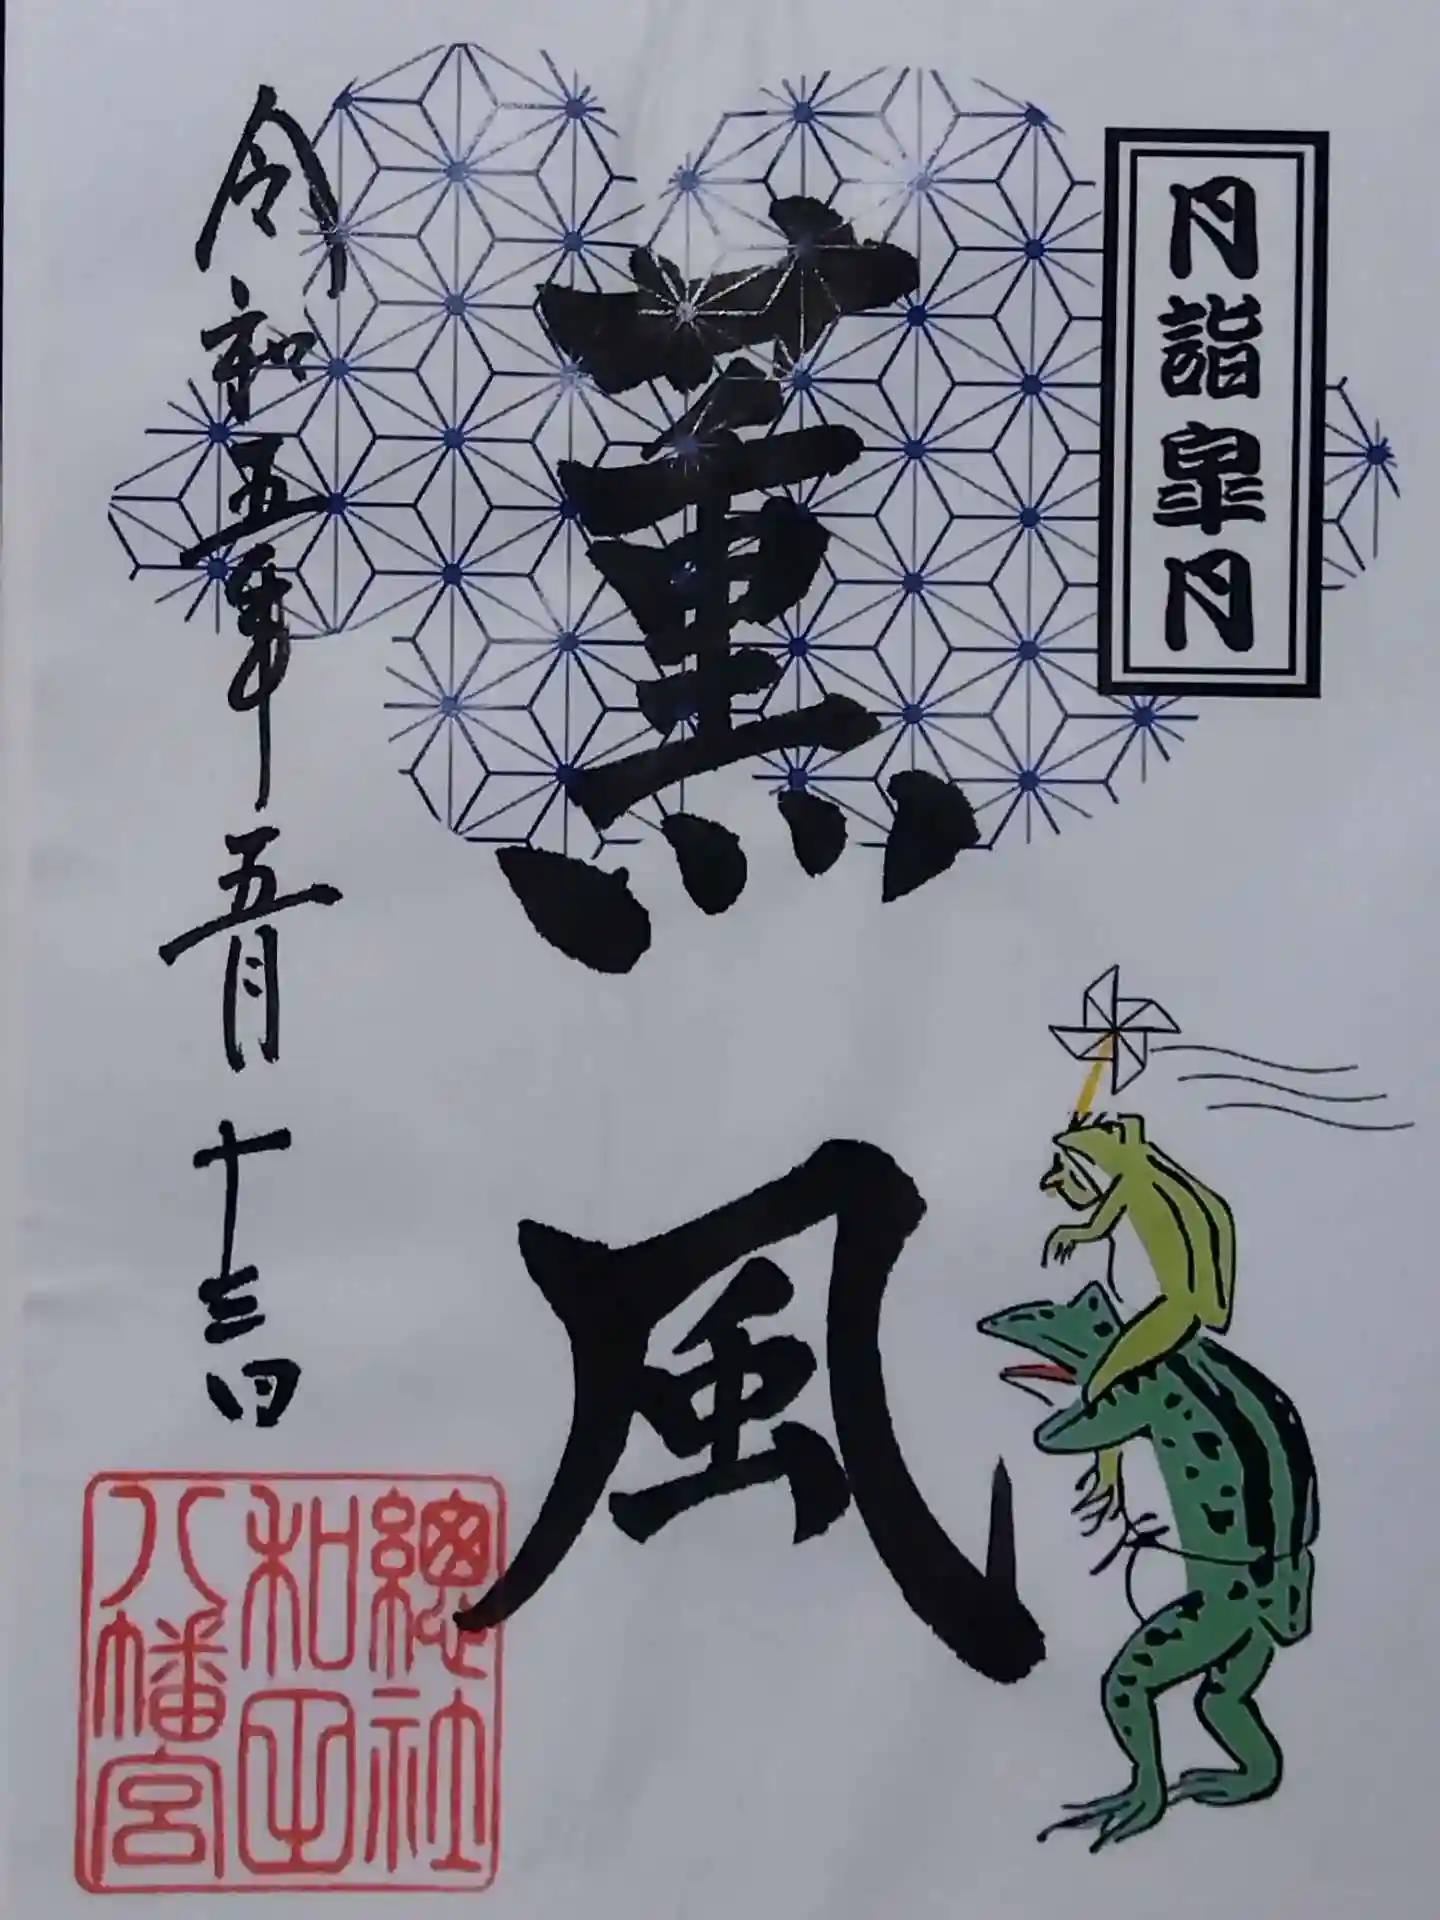 月詣皐月
薫風
令和五年五月十三日
總社
和田
八幡宮